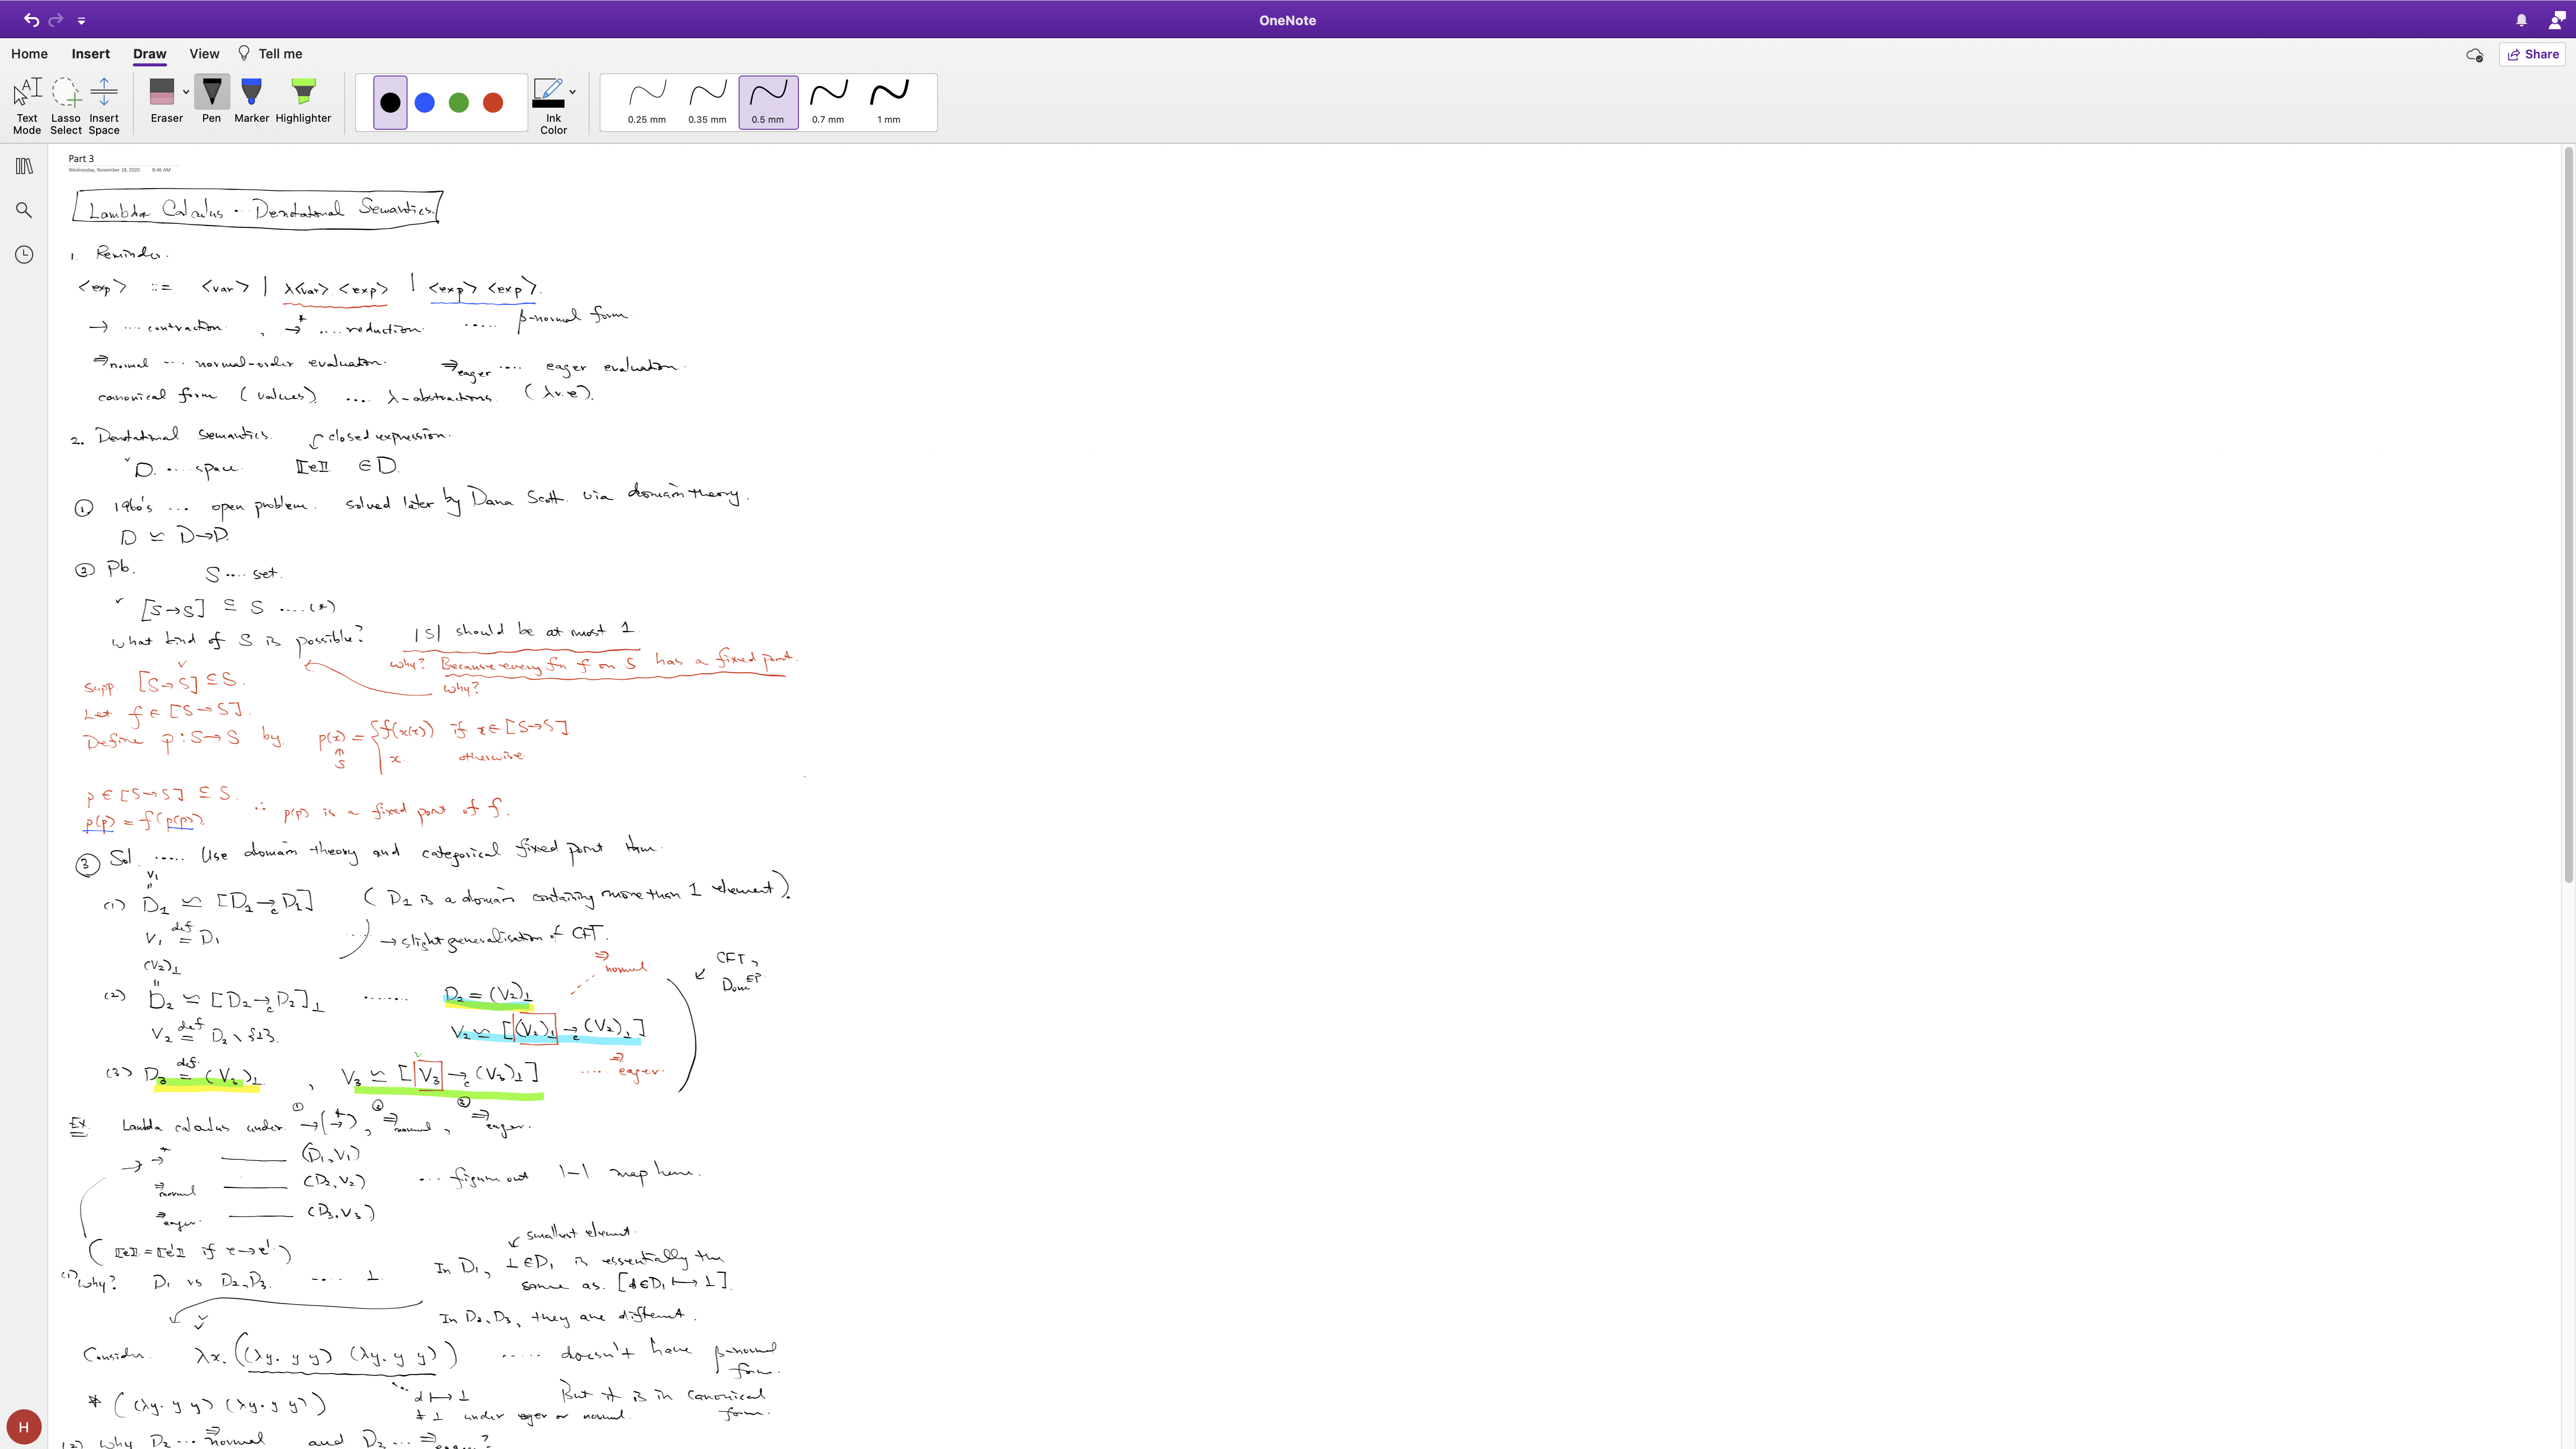 OneNote
Home Insert Draw View Tell me Share
Text Mode Lasso Select Insert Space Eraser Pen Marker Highlighter Ink Color 0.25 mm 0.35 mm 0.5 mm 0.7 mm 1 mm
Part 3
Wednesday, November 18, 2020 8:46 AM
Lambda Calculus ... Denotational Semantics.
1. Reminder.
<exp> ::= <var> | λ<var>. <exp> | <exp> <exp>.
→ .... contraction , →* .... reduction. ..... β-normal form.
⇒normal .... normal-order evaluation. ⇒eager .... eager evaluation.
canonical form (values) .... λ-abstractions. (λv.e).
2. Denotational semantics. closed expression.
D. .... space. ⟦e⟧ ∈ D.
① 1960's ... open problem. solved later by Dana Scott. via domain theory.
D ≃ D→D.
② Pb. S .... set.
[S→S] ⊆ S ....(*)
what kind of S is possible? |S| should be at most 1.
why? Because every fn f on S has a fixed point.
why?
Supp [S→S] ⊆ S.
Let f ∈ [S→S].
Define p : S→S by p(x) = { f(x(x)) if x ∈ [S→S]
S x. otherwise.
p ∈ [S→S] ⊆ S.
p(p) = f(p(p)). ∴ p(p) is a fixed point of f.
③ Sol. ..... Use domain theory and categorical fixed point thm.
V₁
"
(1) D₁ ≃ [D₁ →c D₁] (D₁ is a domain containing more than 1 element).
V₁ def= D₁ → slight generalisation of CFT.
(V₂)⊥ ⇒normal CFT, Dom^EP
"
(2) D₂ ≃ [D₂ →c D₂]⊥ ........ D₂ = (V₂)⊥
V₂ def= D₂ \ {⊥}. V₂ ≃ [(V₂)⊥ →c (V₂)⊥]
(3) D₃ def= (V₃)⊥ , V₃ ≃ [V₃ →c (V₃)⊥] ..... ⇒eager.
① ② ③
Ex. Lambda calculus under →(→*), ⇒normal, ⇒eager.
→ →* ——— (D₁, V₁)
⇒normal ——— (D₂, V₂) ... figure out 1-1 map here.
⇒eager. ——— (D₃, V₃)
(⟦e⟧ = ⟦e'⟧ if e→e'.) smallest element.
(1) Why? D₁ vs D₂, D₃. .... ⊥. In D₁, ⊥ ∈ D₁ is essentially the
same as. [d∈D₁ ↦ ⊥].
In D₂, D₃, they are different.
Consider. λx. ((λy. y y) (λy. y y)) ..... doesn't have β-normal form.
d ↦ ⊥ But it is in canonical form.
≠ ((λy. y y) (λy. y y)) ≠ ⊥ under eager or normal.
(2) Why D₂ ... ⇒normal and D₃ ... ⇒eager?
H